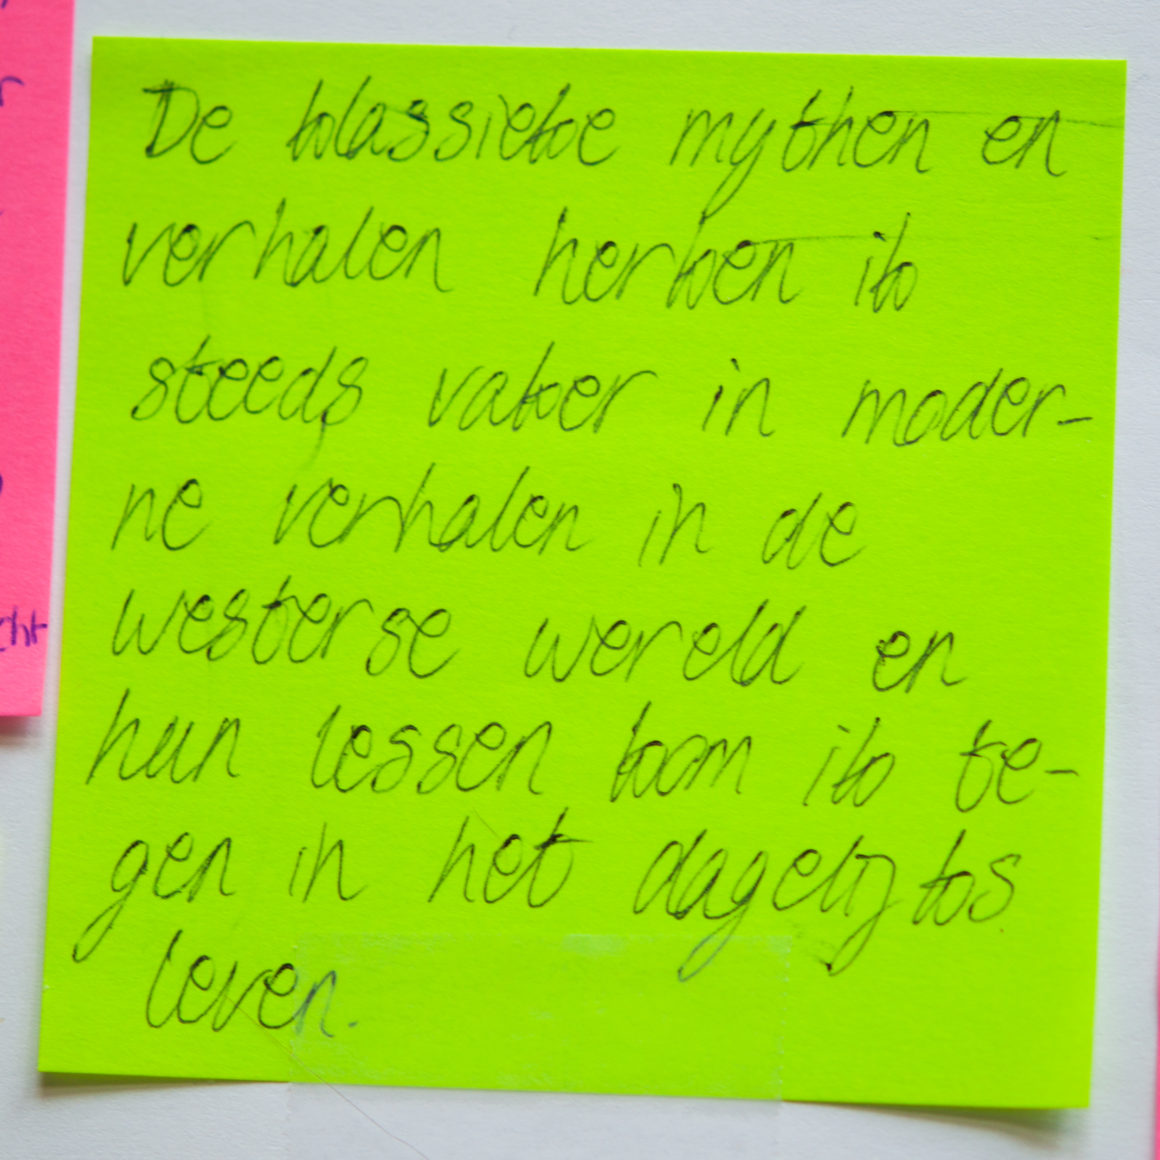 De klassieke mythen en
verhalen herken ik
steeds vaker in moder-
ne verhalen in de
westerse wereld en
hun lessen kom ik te-
gen in het dagelijks
leven.
cht